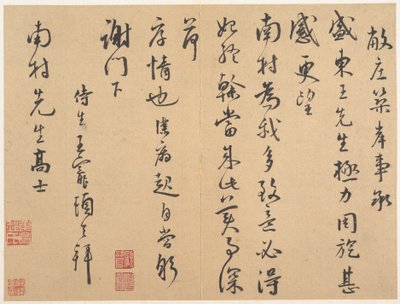 敝庄築岸事承
盛東王先生極力周旋甚
感更望
南村為我多致意必得
始終幹當成此美事深
荷
厚情也病起自當躬
謝門下
侍生王寵頓首拜
南村先生高士